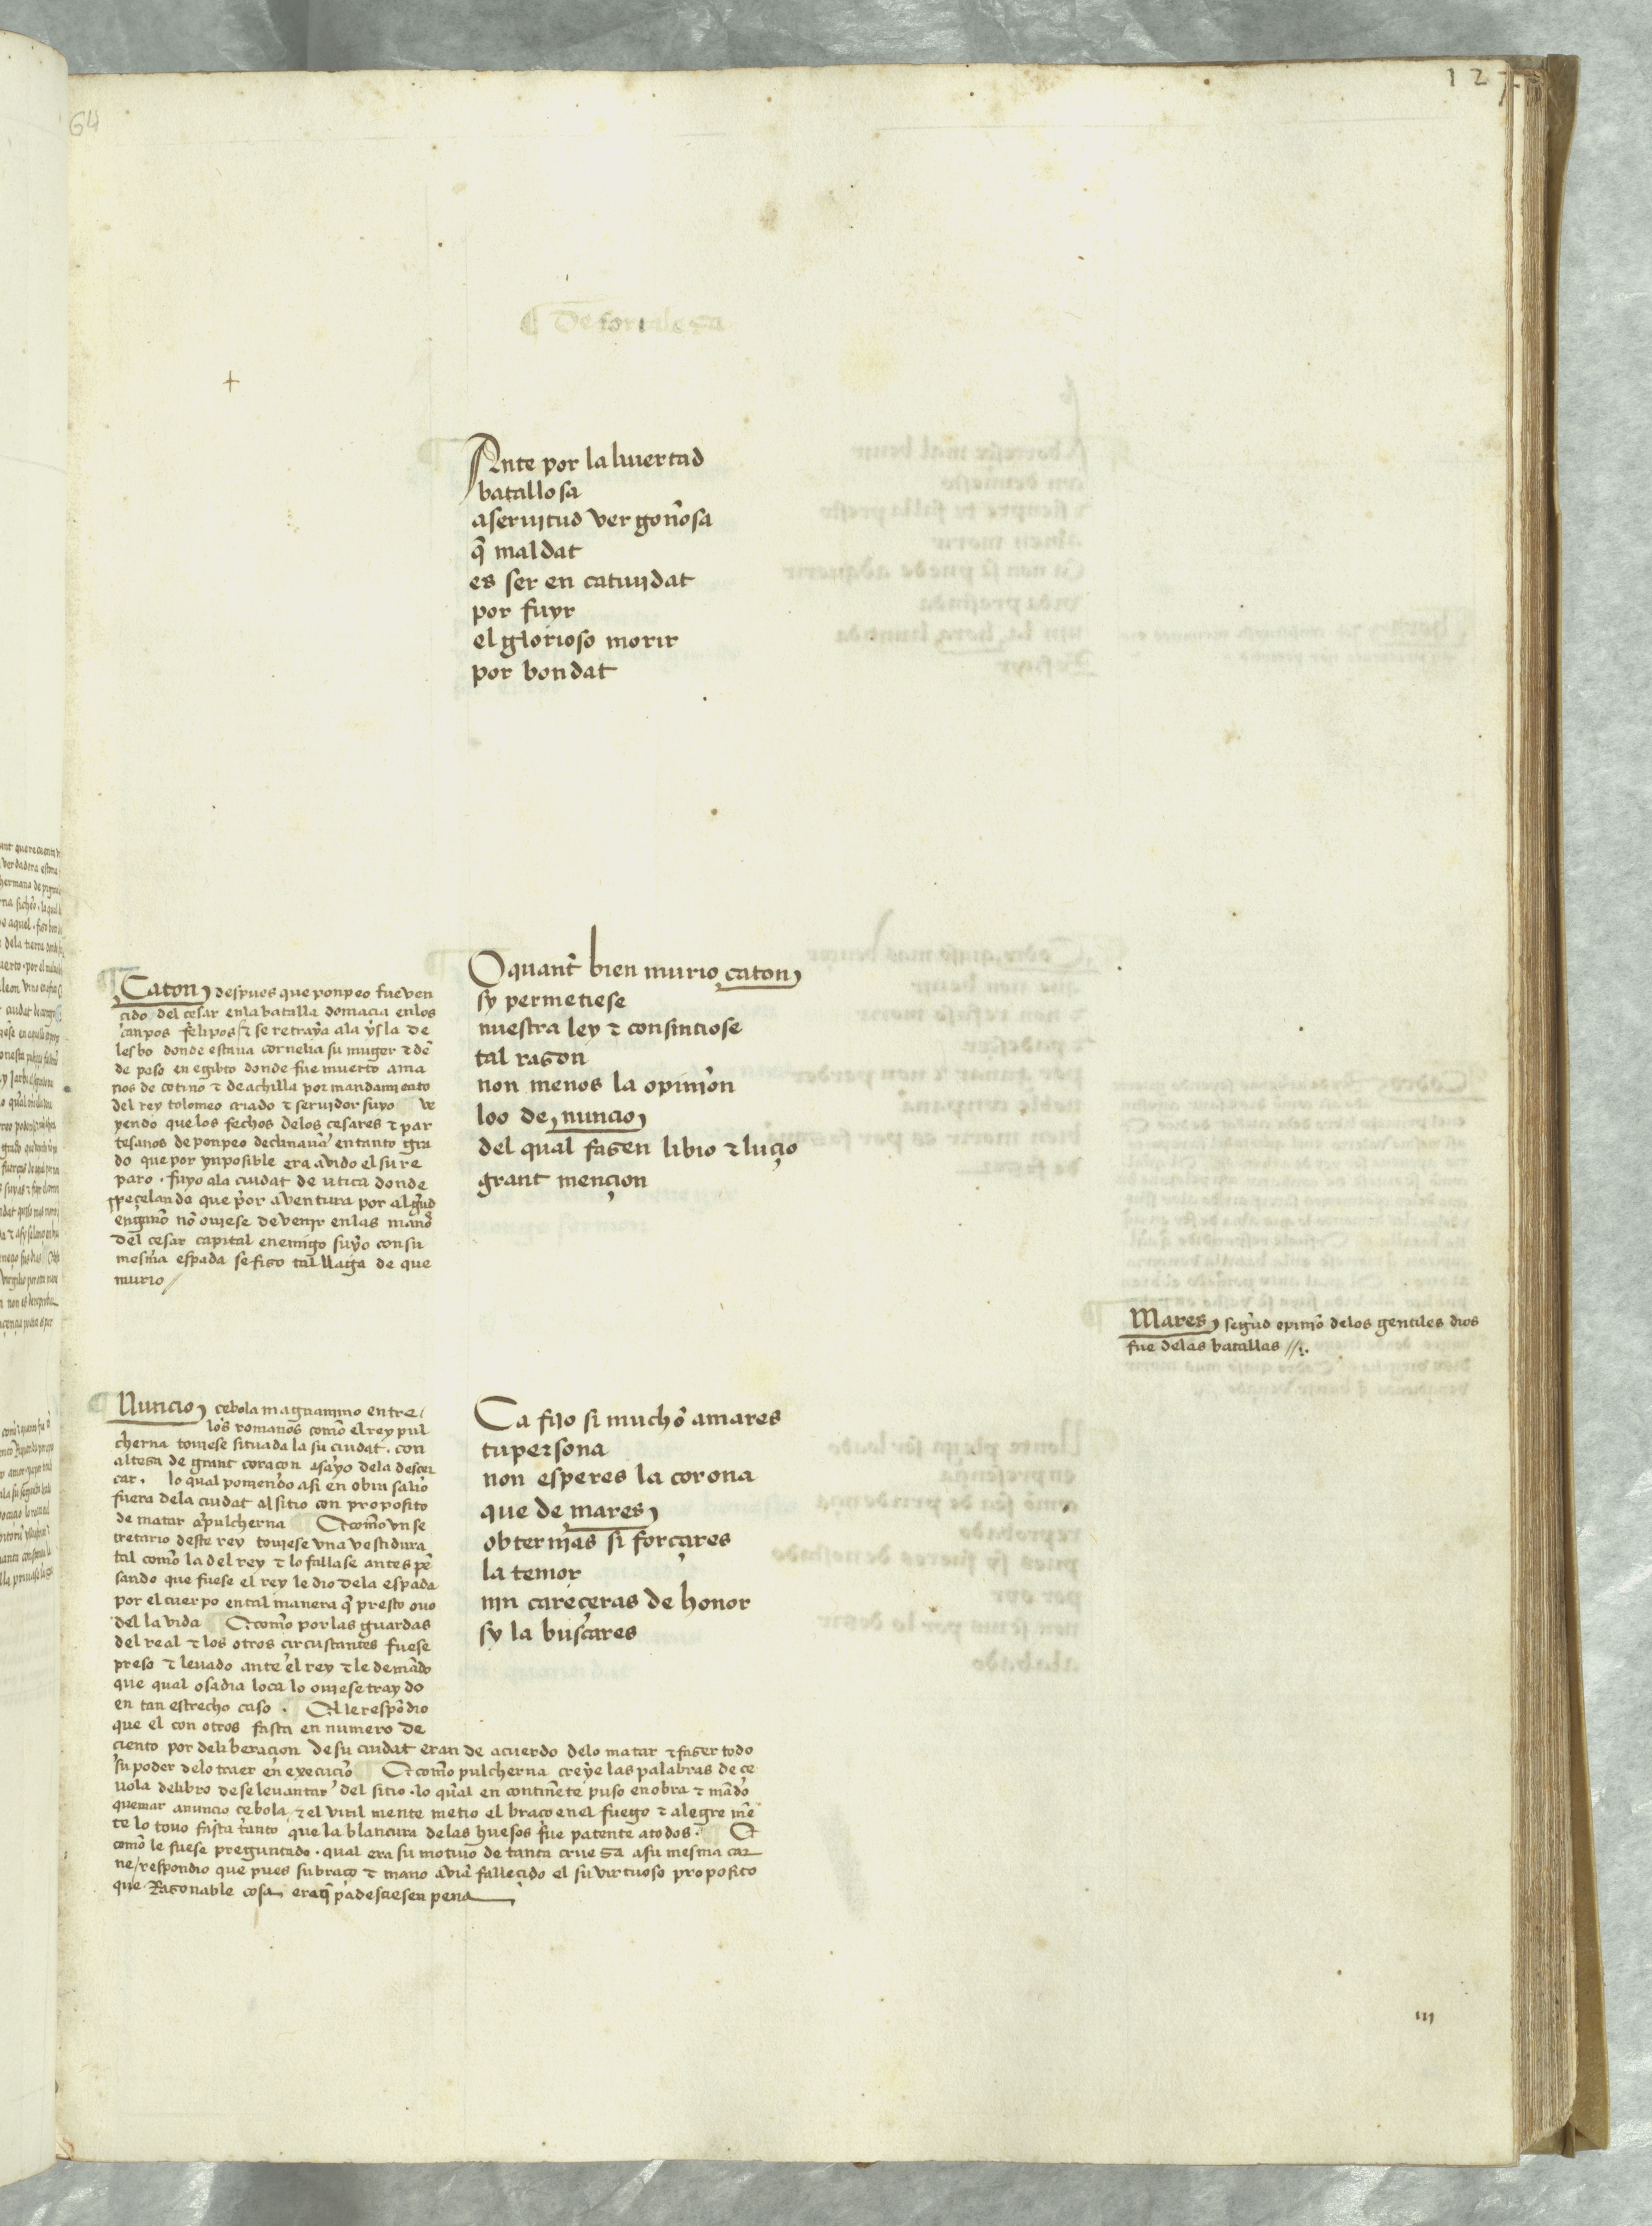 127
64
De fortaleza
Ante por la liuertad
batallosa
a seruitud vergoñosa
q̃ maldat
es ser en catiuidat
por fuyr
el glorioso morir
por bondat
O quant bien murio caton
sy permetiese
nuestra ley τ consintiose
tal rason
non menos la opinion
loo de nuncio
del qual fasen libio τ luçio
grant mençion
Caton despues que ponpeo fue ven
cido del cesar en la batalla domacia en los
canpos felipos τ se retraya a la ysla de
lesbo donde estaua cornelia su muger τ dẽ
de paso en egibto donde fue muerto a ma
nos de cotino τ de achilla por mandamiento
del rey tolomeo criado τ seruidor suyo ve
yendo que los fechos de los cesares τ par
tesanos de ponpeo declinauã en tanto gra
do que por ynposible era avido el su re
paro · fuyo a la ciudat de utica donde
reçelando que por aventura por algũd
engaño nõ ouiese de venir en las manos
del cesar capital enemigo suyo con su
mesma espada se fiso tal llaga de que
murio /
Mares segũd opiniõ de los gentiles dios
fue de las batallas //.
Nuncio cebola magnanimo entre /
los romanos como el rey pul
cherna touiese situada la su ciudat · con
altesa de grant coraçon asayo de la descer
car · lo qual poniendo asi en obra salio
fuera de la ciudat al sitio con proposito
de matar a pulcherna Et como vn se
cretario deste rey touiese vna vestidura
tal como la del rey τ lo fallase antes pẽ
sando que fuese el rey le dio de la espada
por el cuerpo en tal manera q̃ presto ouo
del la vida Et como por las guardas
del real τ los otros circustantes fuese
preso τ leuado ante el rey τ le demãdo
que qual osadia loca lo ouiese traydo
en tan estrecho caso · El le respõdio
que el con otros fasta en numero de
ciento por deliberaçion de su ciudat eran de acuerdo de lo matar τ faser todo
su poder de lo traer en execuciõ Et como pulcherna creye las palabras de ce
uola delibro de se leuantar del sitio · lo qual en continẽte puso en obra τ mãdo
quemar a nuncio cebola τ el viril mente metio el braço en el fuego τ alegre mẽ
te lo touo fasta tanto que la blancura de las huesos fue patente a todos · Et
como le fuese preguntado · qual era su motiuo de tanta cruesa a su mesma car
ne / respondio que pues su braço τ mano avia fallecido el su virtuoso proposito
que Rasonable cosa era q̃ padesciesen pena
Ca fijo si mucho amares
tu persona
non esperes la corona
que de mares
obternias si forçares
la temor
nin careçeras de honor
sy la buscares
iij